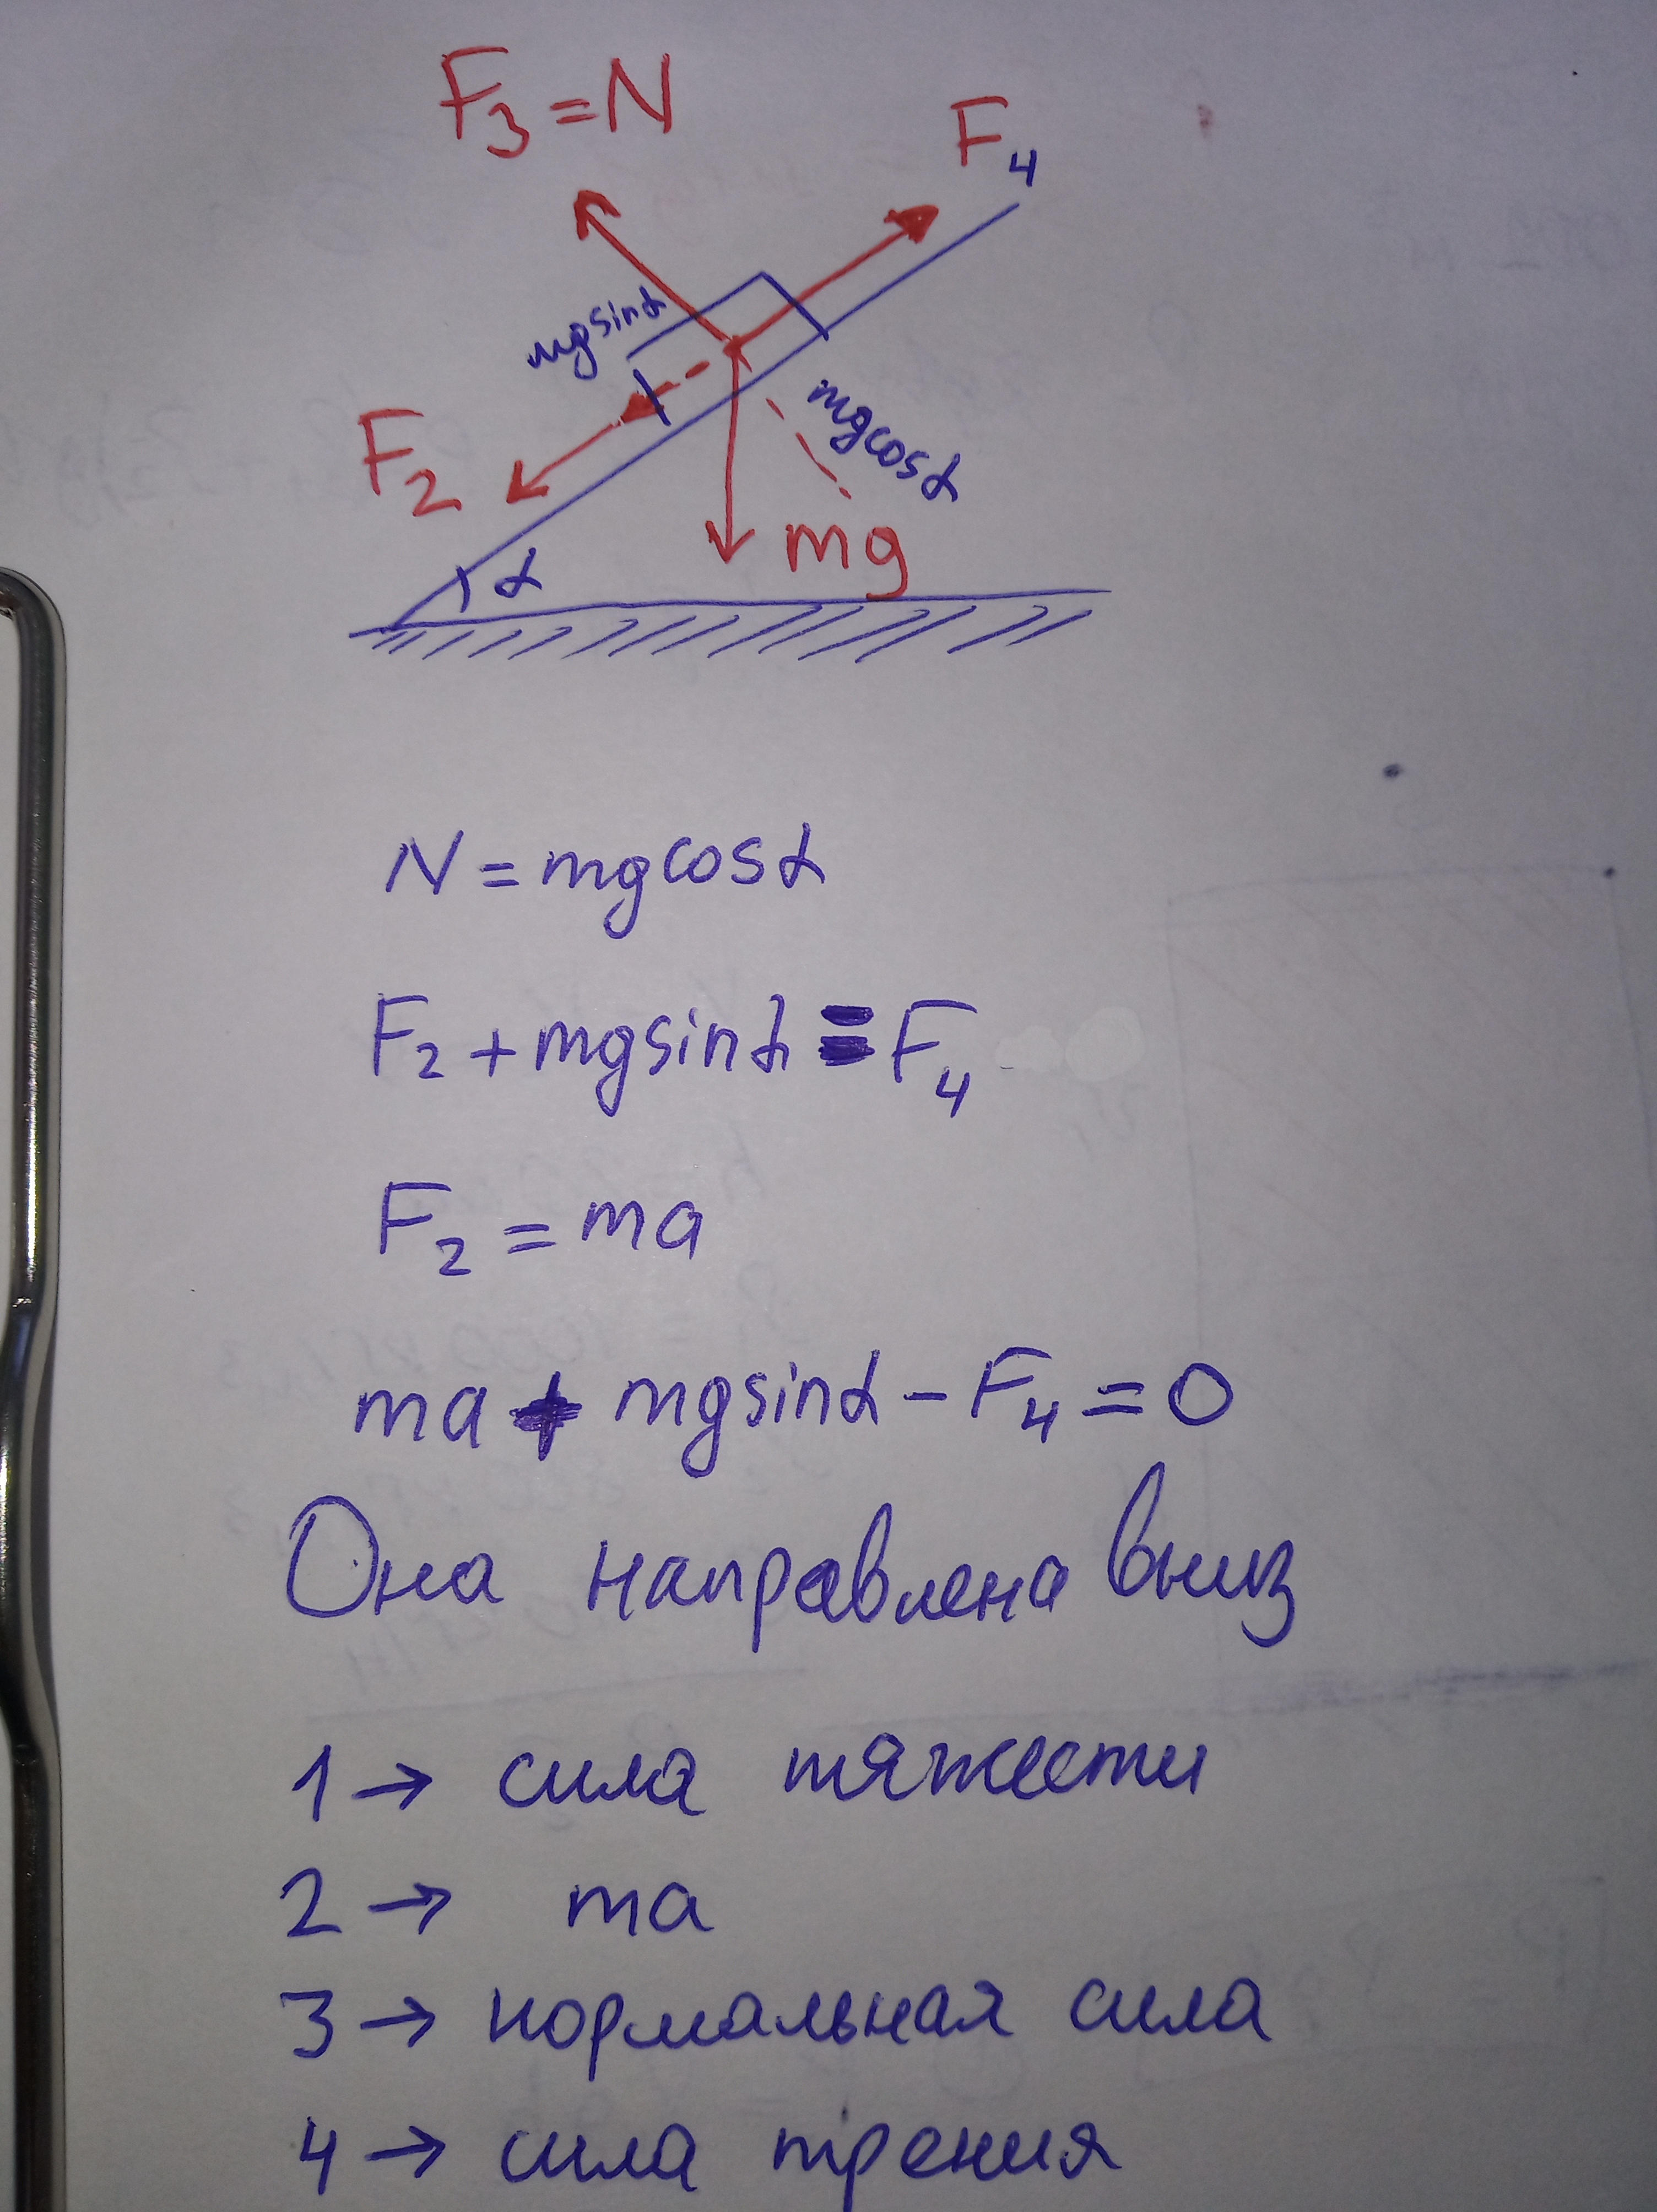 F₃ = N
F₄
mg sinα
mg cosα
F₂
mg
α
N = mg cosα
F₂ + mg sinα = F₄
F₂ = ma
ma + mg sinα − F₄ = 0
Она направлена вниз
1 → сила тяжести
2 → ma
3 → нормальная сила
4 → сила трения